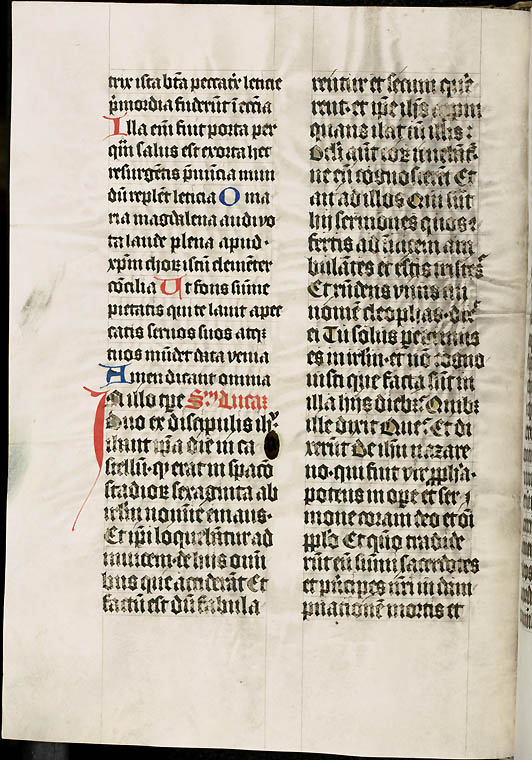 trix ista bt̄a peccatr̄ leticie
p̄mordia fuderūt ī ecc̄ia
Illa em̄ fuit porta per
qm̄ salus est exorta hec
resurgētis p̄nūcia mun
dū replēt leticia O ma
ria magdalena audi vo
ta laude plena apud
xpm̄ chorz istū clemēter
cōcilia Ut fons sūme
pietatis qui te lauit a pec
catis seruos suos atqz
tuos mūdet data venia
Amen dicant omnia
In illo tp̄e Scdm Lucaz
Duo ex discipulis ihū
ibant ip̄a die in ca
stellū· q erat in spaco
stadiorz sexaginta ab
irlm̄ nomīe emaus·
Et ip̄i loquebātur ad
inuicem· de hijs om̄i
bus que acciderāt Et
factū est dū fabula
rentur et secum quē
rent· et ip̄e ihs appīn
quans ibat cū illis :
Oc̄li aut̄ eorz tenebāt̄·
ne eū cognoscerēt Et
ait ad illos Qui sūt
hij sermones quos 
fertis ad inuicem am
bulātes et estis tristes
Et rn̄dens vnus cui
nomē cleophas· dix̄
ei Tu solus peregrinus
es in irlm· et nō cogno
uisti que facta sūt in
illa hijs diebz Quibz
ille dixit Que Et di
xerūt De ihu nazare
no· qui fuit vir pph̄a·
potens in oꝑe et ser
mone coram deo et oī
pplo Et quō tradide
rūt eū sūmi sacerdotes
et pn̄cipes nr̄i in dam
pnationē mortis et